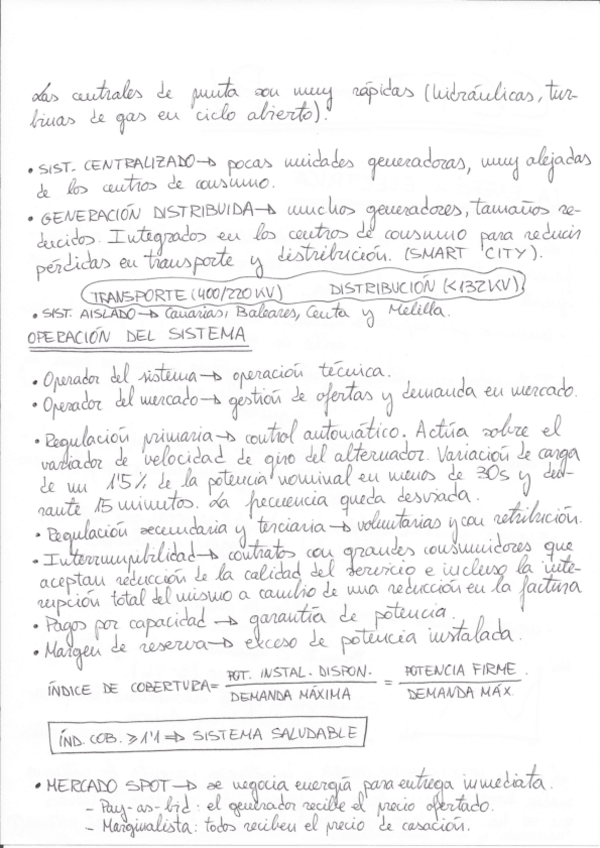 Las centrales de punta son muy rápidas (hidráulicas, tur-
binas de gas en ciclo abierto).
• SIST. CENTRALIZADO → pocas unidades generadoras, muy alejadas
de los centros de consumo.
• GENERACIÓN DISTRIBUIDA → muchos generadores, tamaños re-
ducidos. Integrados en los centros de consumo para reducir
pérdidas en transporte y distribución. (SMART CITY).
TRANSPORTE (400/220 KV) DISTRIBUCIÓN (<132 KV)
• SIST. AISLADO → Canarias, Baleares, Ceuta y Melilla.
OPERACIÓN DEL SISTEMA
• Operador del sistema → operación técnica.
• Operador del mercado → gestión de ofertas y demanda en mercado.
• Regulación primaria → control automático. Actúa sobre el
variador de velocidad de giro del alternador. Variación de carga
de un 1'5% de la potencia nominal en menos de 30s y du-
rante 15 minutos. La frecuencia queda desviada.
• Regulación secundaria y terciaria → voluntarias y con retribución.
• Interrumpibilidad → contratos con grandes consumidores que
aceptan reducción de la calidad del servicio e incluso la inte-
rrupción total del mismo a cambio de una reducción en la factura
• Pagos por capacidad → garantía de potencia.
• Margen de reserva → exceso de potencia instalada.
ÍNDICE DE COBERTURA = POT. INSTAL. DISPON. / DEMANDA MÁXIMA = POTENCIA FIRME. / DEMANDA MÁX.
ÍND. COB. ≥ 1'1 ⇒ SISTEMA SALUDABLE
• MERCADO SPOT → se negocia energía para entrega inmediata.
- Pay-as-bid: el generador recibe el precio ofertado.
- Marginalista: todos reciben el precio de casación.